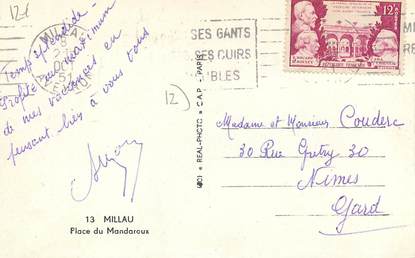 12f
MILLAU
8
51
SES GANTS
SES CUIRS
BLES
12f
RÉPUBLIQUE FRANÇAISE
Temps splendide -
Profite au maximum
de mes vacances en
pensant bien à vous tous
12
Madame et Monsieur Couderc
30 Rue Grétry 30
Nimes
Gard
"REAL-PHOTO" C.A.P. - PARIS
13 MILLAU
Place du Mandarous